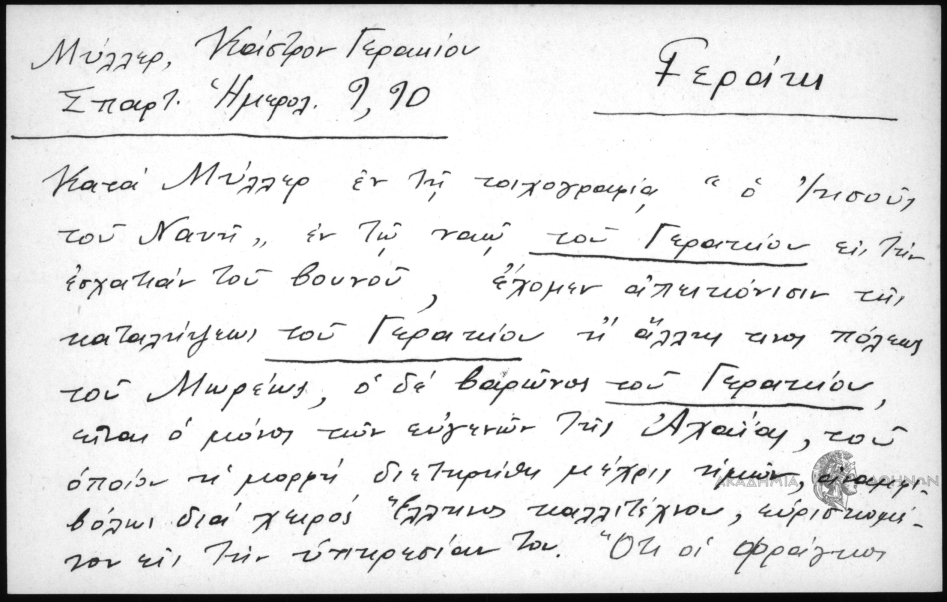 Μύλλερ, Κάστρον Γερακίου
Σπαρτ. Ἡμερολ. 9, 90
Γεράκι
Κατά Μύλλερ ἐν τῇ τοιχογραφίᾳ "ὁ Ἰησοῦς
τοῦ Ναυῆ„ ἐν τῷ ναῷ τοῦ Γερακίου εἰς τήν
ἐσχατιάν τοῦ βουνοῦ, ἔχομεν ἀπεικόνισιν τῆς
καταλήψεως τοῦ Γερακίου ἤ ἄλλης τινος πόλεως
τοῦ Μωρέως, ὁ δέ βαρῶνος τοῦ Γερακίου,
εἶναι ὁ μόνος τῶν εὐγενῶν τῆς Ἀχαΐας, τοῦ
ὁποίου ἡ μορφή διετηρήθη μέχρις ἡμῶν, ἀναμφι-
βόλως διά χειρός Ἕλληνος καλλιτέχνου, εὑρισκομέ-
νου εἰς τήν ὑπηρεσίαν του. Ὅτι οἱ Φράγκοι
ΑΚΑΔΗΜΙΑ ΑΘΗΝΩΝ